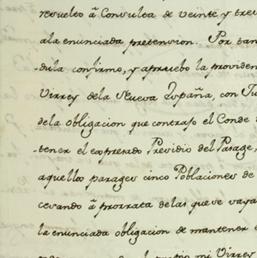 resuelto â Consulta de veinte y tres
ala enunciada pretension. Por tan
dula confirmo, y apruebo la providen
Virrey dela Nueva España, con Ju
dela obligacion que contrajo el Conde
tener el expresado Presidio del Parage,
aquellos parages cinco Poblaciones de
cevando â prorrata delas que se vaya
la enunciada obligacion de mantener e
mi Virrey